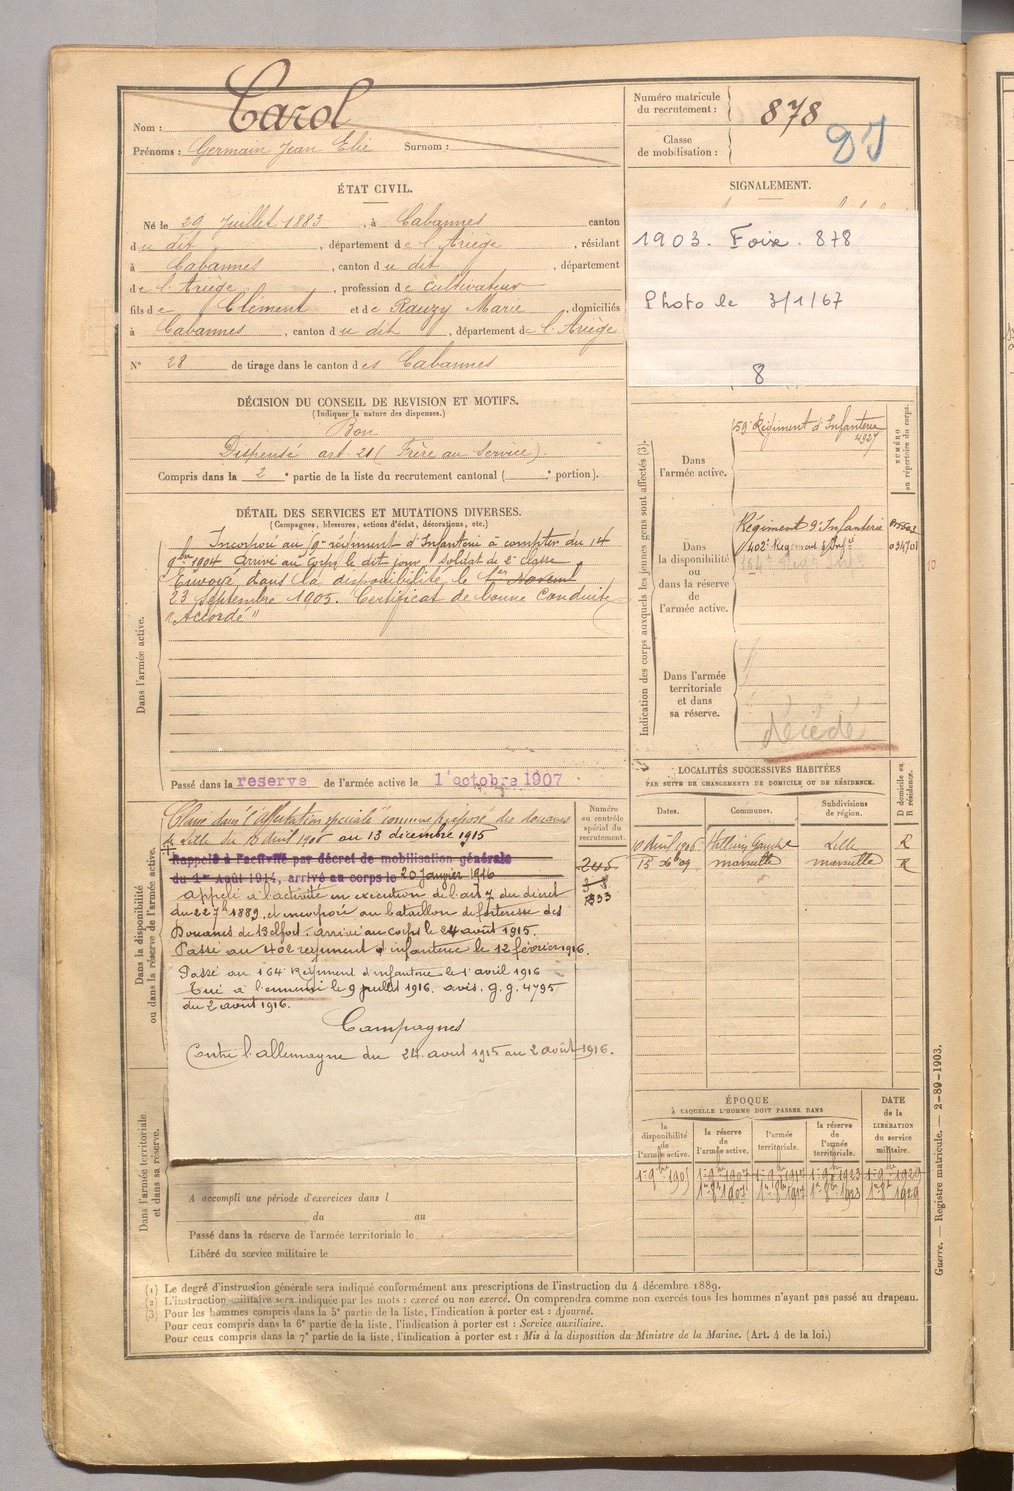 Nom : Carol
Prénoms : Germain Jean Elie Surnom :
Numéro matricule du recrutement : 878
Classe de mobilisation :
ÉTAT CIVIL.
Né le 29 Juillet 1883, à Cabannes canton
du dit, département de l'Ariège, résidant
à Cabannes, canton du dit, département
de l'Ariège, profession de cultivateur
fils de Clément et de Rauzy Marie, domiciliés
à Cabannes, canton du dit, département de l'Ariège
N° 28 de tirage dans le canton des Cabannes
SIGNALEMENT.
1903. Foix. 878
Photo le 3/1/67
8
DÉCISION DU CONSEIL DE REVISION ET MOTIFS.
(Indiquer la nature des dispenses.)
Bon
Dispensé art. 21 (Frère au service).
Compris dans la 2e partie de la liste du recrutement cantonal ( e portion).
DÉTAIL DES SERVICES ET MUTATIONS DIVERSES.
(Campagnes, blessures, actions d'éclat, décorations, etc.)
Dans l'armée active.
Incorporé au régiment d'Infanterie à compter du 14
9bre 1904 Arrivé au corps le dit jour, soldat de 2e classe
Envoyé dans la disponibilité le 1er Novem
23 Septembre 1905. Certificat de bonne conduite
"Accordé"
Passé dans la reserve de l'armée active le 1 octobre 1907
Indication des corps auxquels les jeunes gens sont affectés (3).
NUMÉRO au répertoire du corps.
Dans l'armée active.
59e Régiment d'Infanterie
4927
Dans la disponibilité ou dans la réserve de l'armée active.
Régiment d'Infanterie
402e Régiment d'Infie
Dans l'armée territoriale et dans sa réserve.
décédé
LOCALITÉS SUCCESSIVES HABITÉES
PAR SUITE DE CHANGEMENTS DE DOMICILE OU DE RÉSIDENCE.
Dates. Communes. Subdivisions de région. D domicile ou R résidence.
10 Avril 1906 Halluin Lille R
15 Xbre 09 marseille marseille R
Dans la disponibilité ou dans la réserve de l'armée active.
Numéro au contrôle spécial du recrutement.
245
Classé dans l'affectation spéciale comme préposé des douanes
de Lille du 10 Avril 1906 au 13 décembre 1915
Rappelé à l'activité par décret de mobilisation générale
du 1er Août 1914, arrivé au corps le 20 janvier 1916
appelé à l'activité en exécution de l'art 7 du décret
du 22 7bre 1889, et incorporé au bataillon de forteresse des
Douanes de Belfort. arrivé au corps le 24 août 1915.
Passé au 402e régiment d'infanterie le 12 février 1916.
Passé au 164e Régiment d'infanterie le 1er avril 1916
Tué à l'ennemi le 9 juillet 1916. avis. g. g. 4795
du 2 août 1916.
Campagnes
Contre l'allemagne du 24. aout 1915 au 2 août 1916.
Dans l'armée territoriale et dans sa réserve.
A accompli une période d'exercices dans l
du au
Passé dans la réserve de l'armée territoriale le
Libéré du service militaire le
ÉPOQUE
À LAQUELLE L'HOMME DOIT PASSER DANS
DATE de la LIBÉRATION du service militaire.
la disponibilité de l'armée active. la réserve de l'armée active. l'armée territoriale. la réserve de l'armée territoriale.
1er 9bre 1905 1er 9bre 1907 1er 9bre 1917 1er 9bre 1923 1er 9bre 1929
1er 8bre 1907 1er 8bre 1917 1er 8bre 1923 1er 8bre 1929
(1) Le degré d'instruction générale sera indiqué conformément aux prescriptions de l'instruction du 4 décembre 1889.
(2) L'instruction militaire sera indiquée par les mots : exercé ou non exercé. On comprendra comme non exercés tous les hommes n'ayant pas passé au drapeau.
(3) Pour les hommes compris dans la 5e partie de la liste, l'indication à porter est : Ajourné.
Pour ceux compris dans la 6e partie de la liste, l'indication à porter est : Service auxiliaire.
Pour ceux compris dans la 7e partie de la liste, l'indication à porter est : Mis à la disposition du Ministre de la Marine. (Art. 4 de la loi.)
Guerre. — Registre matricule. — 2-89-1903.